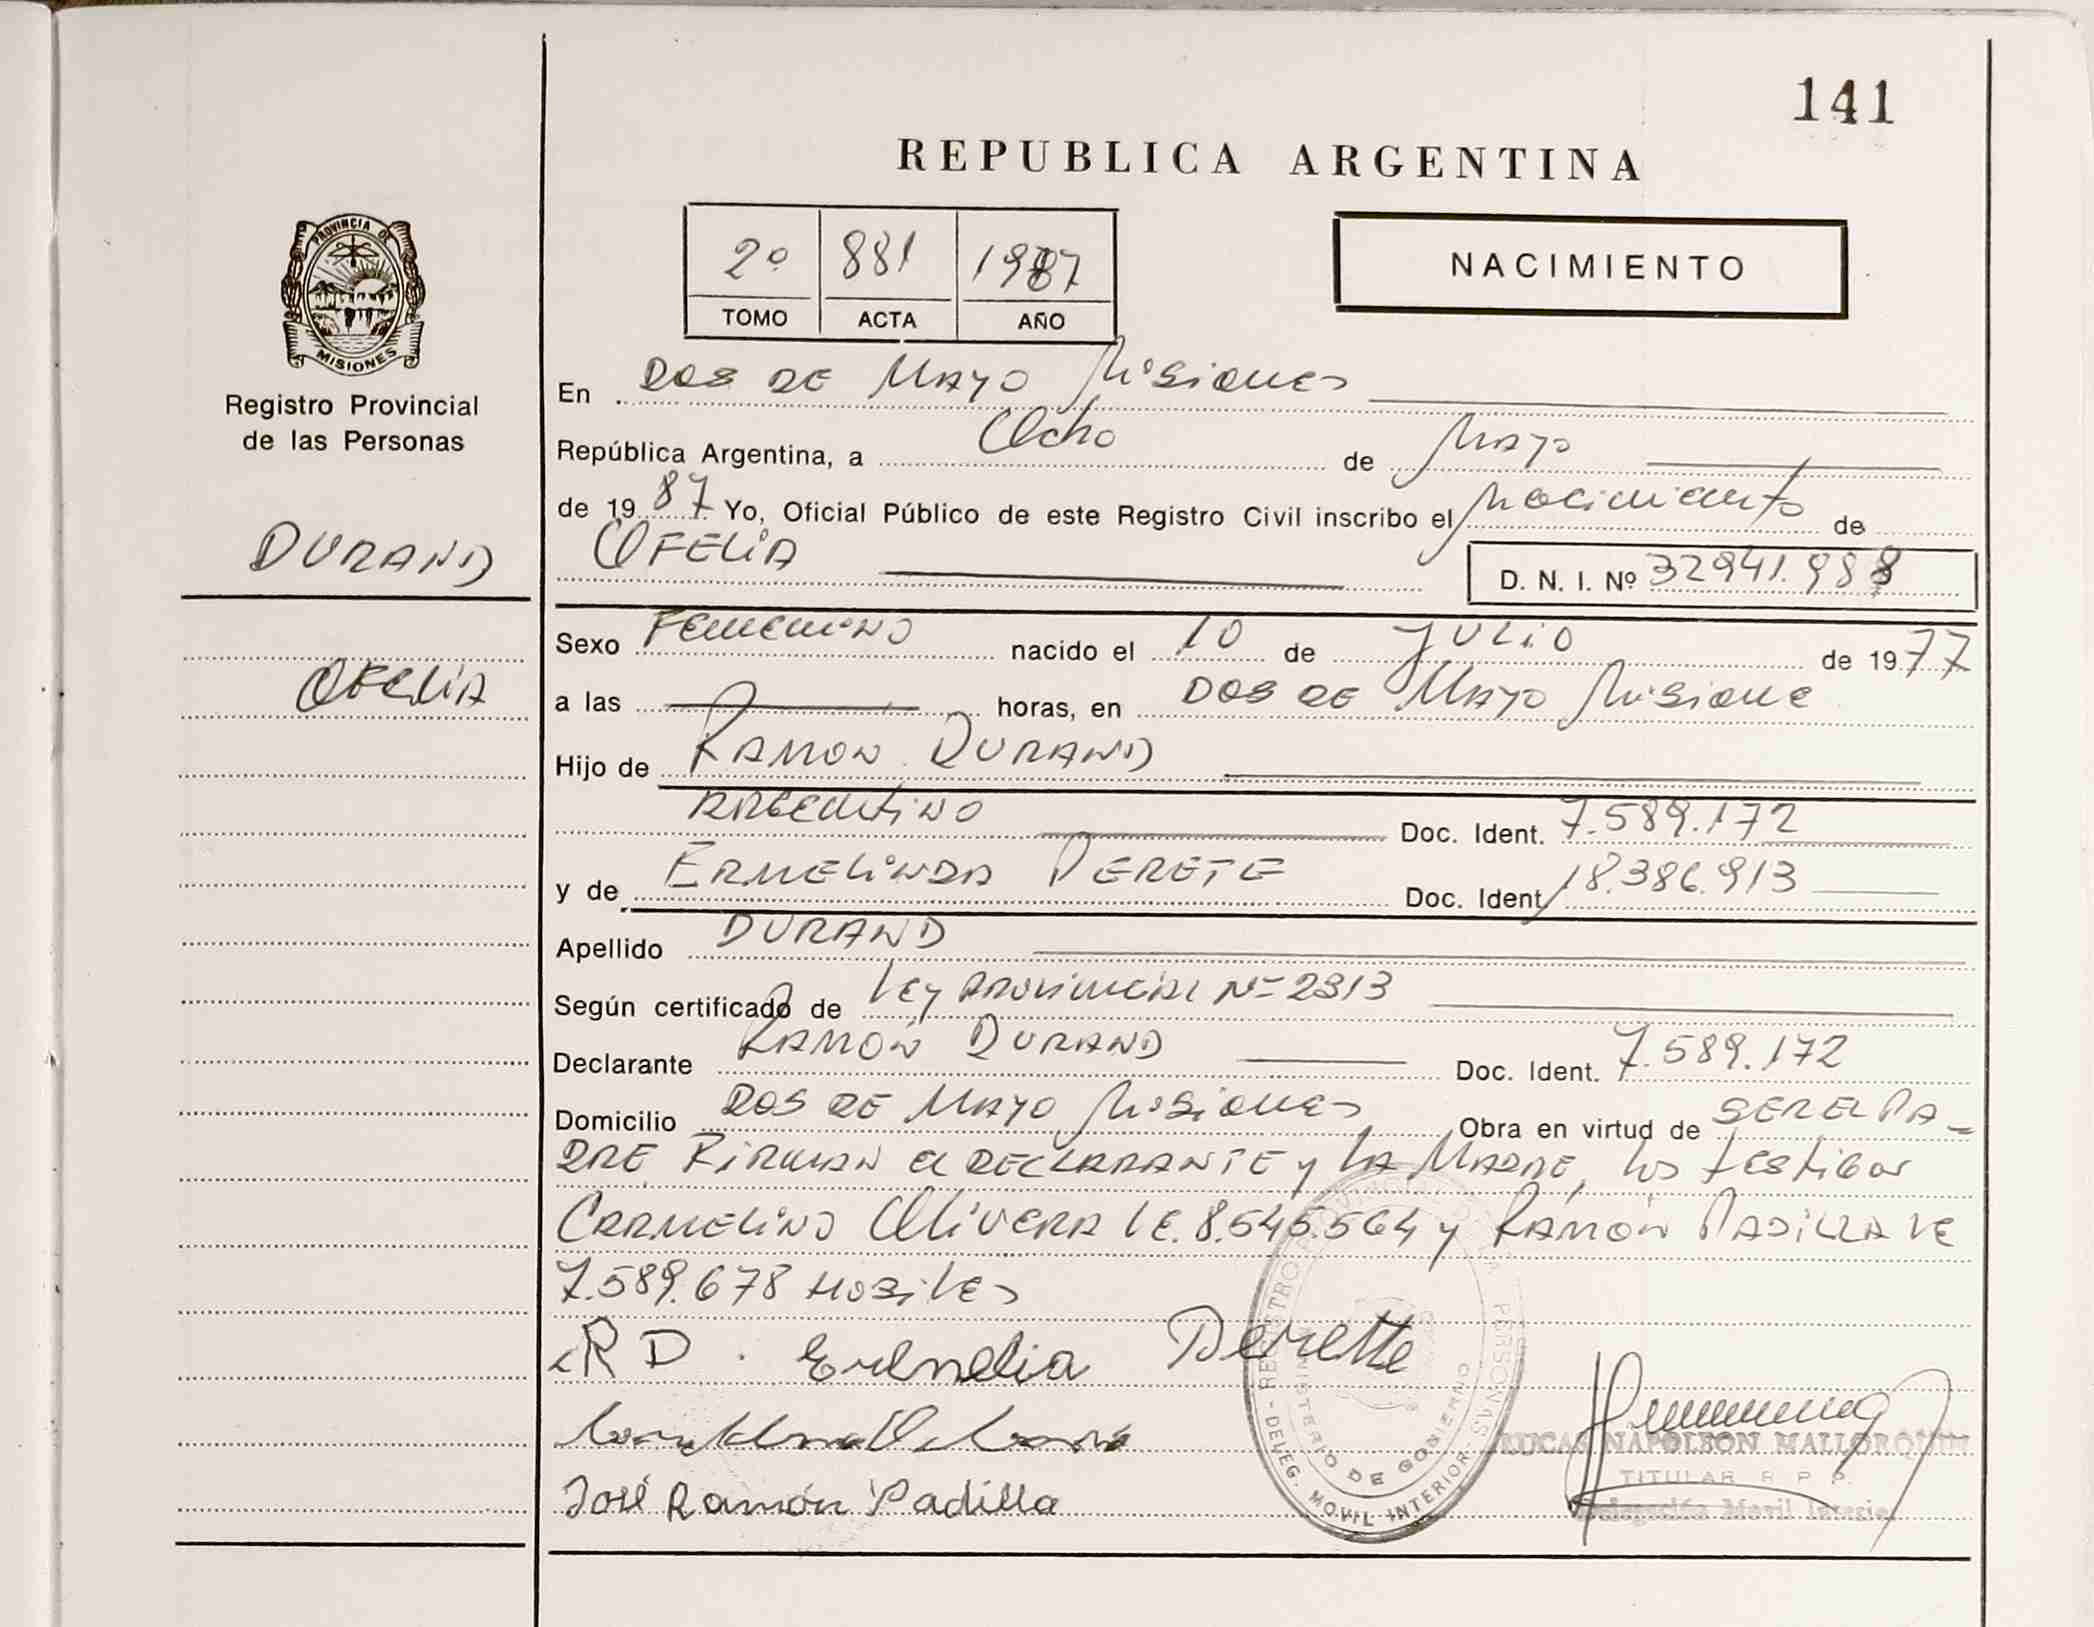 141
REPUBLICA ARGENTINA
PROVINCIA DE
MISIONES
Registro Provincial
de las Personas
DURAND
OFELIA
2º 881 1987
TOMO ACTA AÑO
NACIMIENTO
En DOS DE MAYO Misiones
República Argentina, a Ocho de Mayo
de 1987 Yo, Oficial Público de este Registro Civil inscribo el Nacimiento de
OFELIA D. N. I. Nº 32941.988
Sexo Femenino nacido el 10 de JULIO de 1977
a las horas, en DOS DE MAYO Misione
Hijo de RAMON DURAND
ARGENTINO Doc. Ident. 7.589.172
y de ERMELINDA DERETE Doc. Ident 18.386.913
Apellido DURAND
Según certificado de LEY PROVINCIAL Nº 2313
Declarante RAMÓN DURAND Doc. Ident. 7.589.172
Domicilio DOS DE MAYO Misiones Obra en virtud de SER EL PA-
DRE FIRMAN el DECLARANTE y LA MADRE, los testigos
CARMELINO OLIVERA LE. 8.545.564 y RAMÓN PADILLA LE
7.589.678 HOBILES
RD. Ermelia Derette
José Ramón Padilla
REGISTRO PROVINCIAL DE LAS PERSONAS
MINISTERIO DE GOBIERNO
DELEG. MOVIL INTERIOR
LUCAS NAPOLEON MALLORQUIN
TITULAR R. P. P.
Delegación Movil Interior